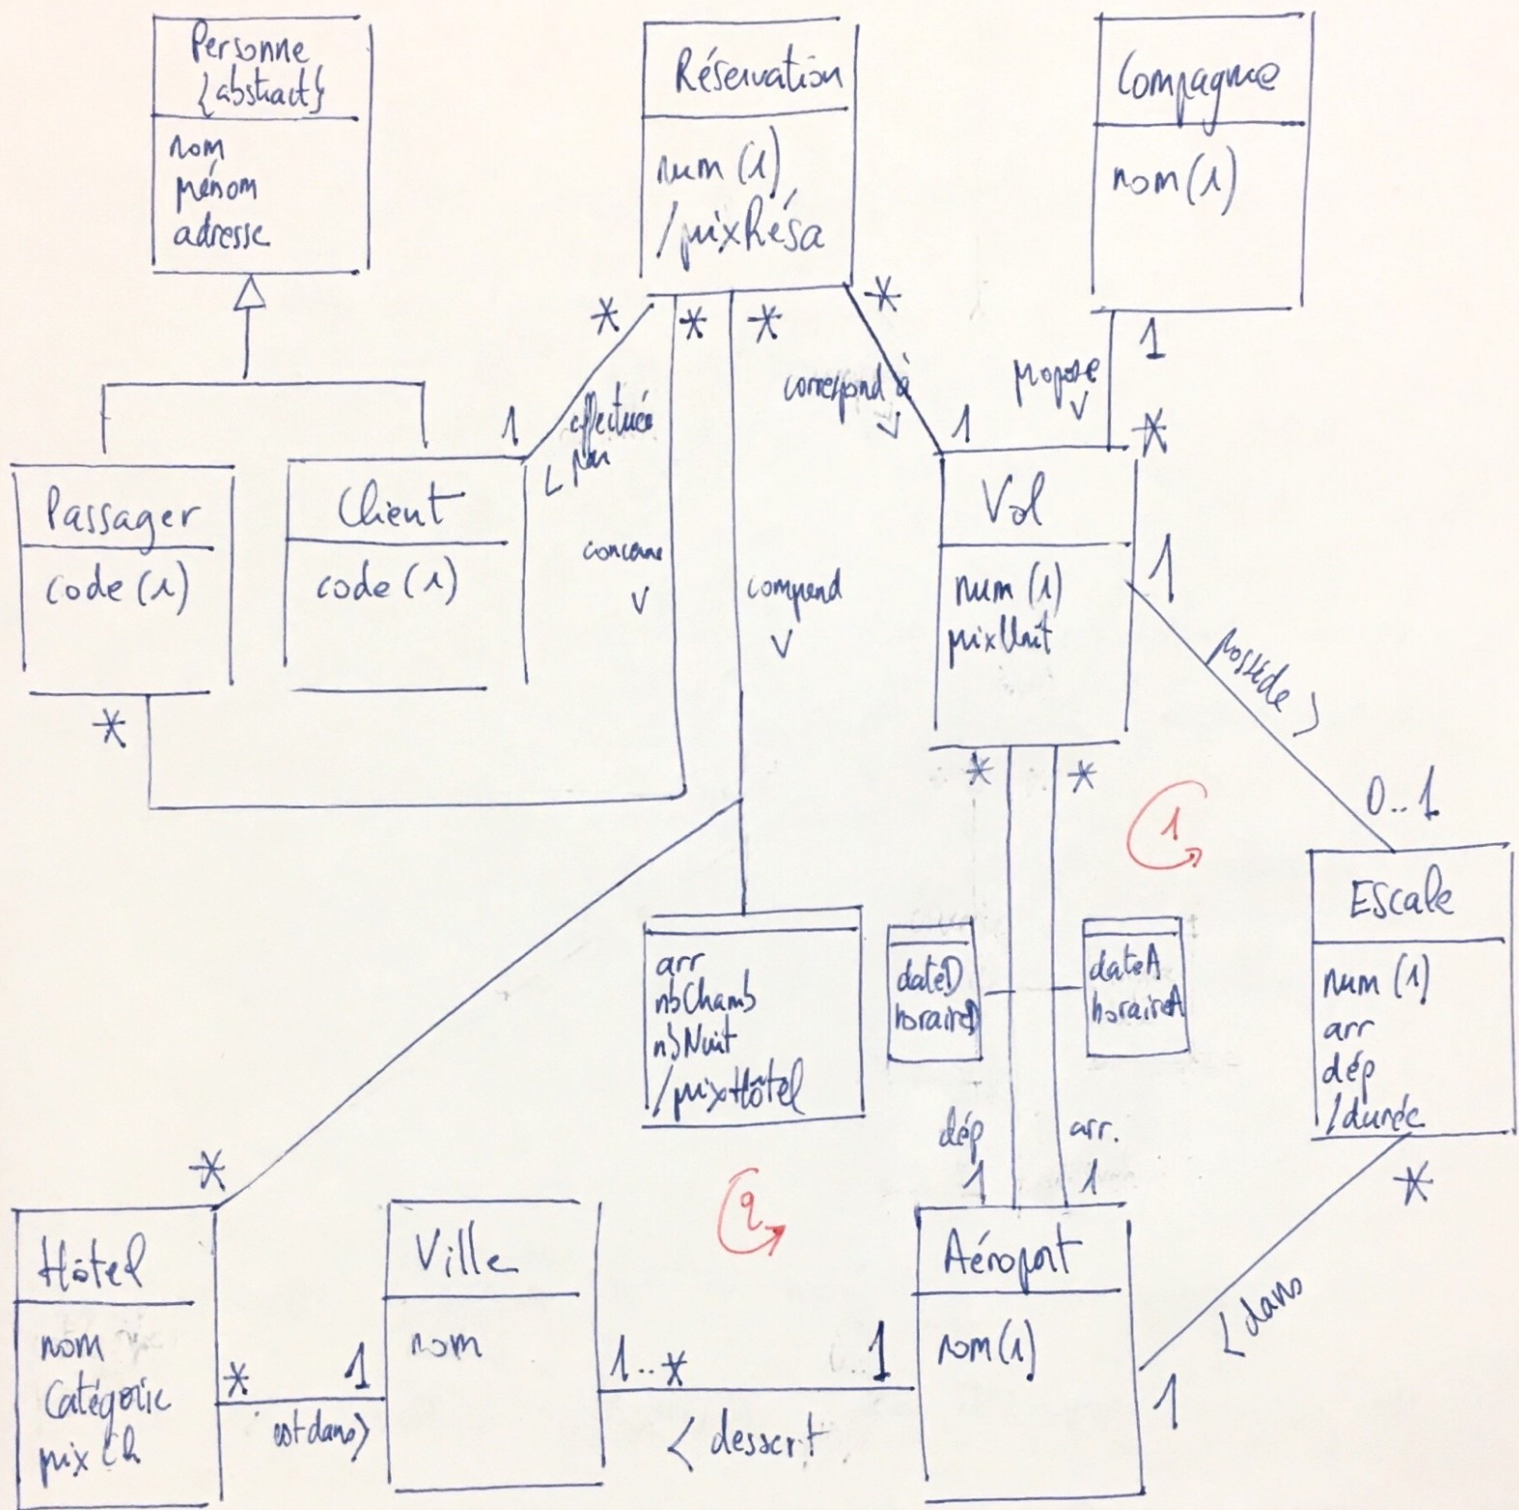 Personne
{abstract}
nom
prénom
adresse
Réservation
num (1)
/prixRésa
Compagnie
nom (1)
*
*
*
*
1
effectuée
< par
correspond à
v
1
propose
v
1
*
Passager
code (1)
*
Client
code (1)
concerne
v
comprend
v
Vol
num (1)
prixUnit
1
possède >
0..1
*
*
1
Escale
num (1)
arr
dép
/durée
*
arr
nbChamb
nbNuit
/prixHôtel
dateD
horaireD
dateA
horaireA
dép
1
arr.
1
*
2
Hôtel
nom
Catégorie
prix Ch
*
est dans >
1
Ville
nom
1..*
< dessert
1
Aéroport
nom (1)
< dans
1